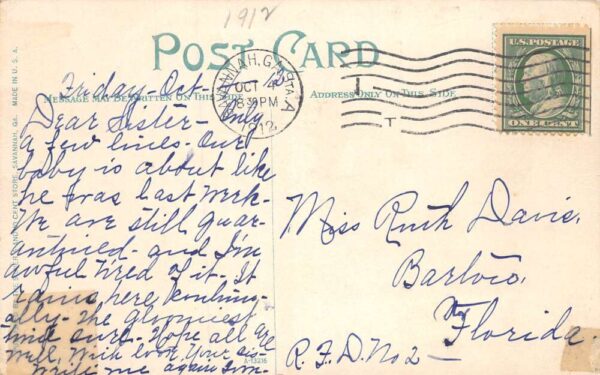 1912
POST CARD
MESSAGE MAY BE WRITTEN ON THIS SIDE
ADDRESS ONLY ON THIS SIDE
SAVANNAH, GA.
OCT 4
8 30 PM
1912
U.S. POSTAGE
ONE CENT
Friday - Oct -
Dear Sister - Only
a few lines - Our
baby is about like
he was last week -
We are still quar-
antined - and I'm
awful tired of it - It
rains here continu-
ally - the gloomiest
time sure - Hope all are
well, With love, Your sis-
Write me again soon
Miss Ruth Davis,
Bartow,
Florida.
R.F.D. No 2 -
SAVANNAH, GA. MADE IN U.S.A.
A-13216